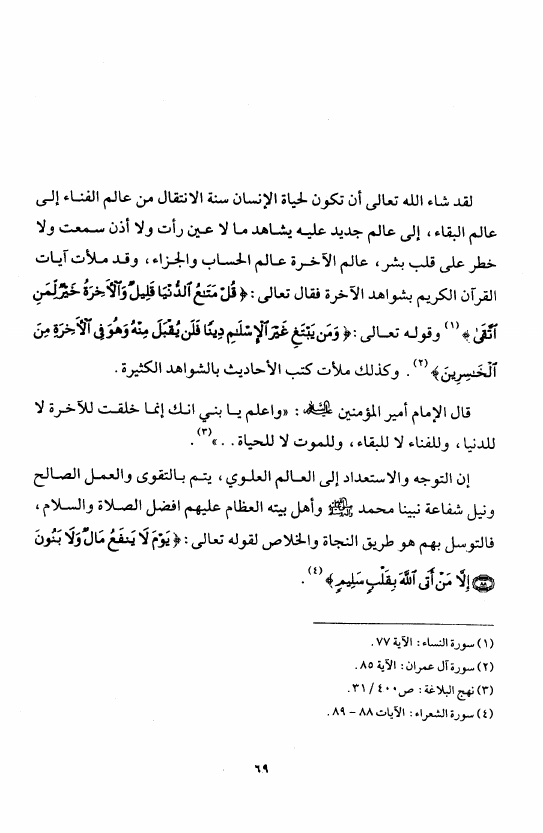 لقد شاء الله تعالى أن تكون لحياة الإنسان سنة الانتقال من عالم الفناء إلى
عالم البقاء، إلى عالم جديد عليه يشاهد ما لا عين رأت ولا أذن سمعت ولا
خطر على قلب بشر، عالم الآخرة عالم الحساب والجزاء، وقد ملأت آيات
القرآن الكريم بشواهد الآخرة فقال تعالى: ﴿قُلْ مَتَـٰعُ ٱلدُّنْيَا قَلِيلٌ وَٱلْآخِرَةُ خَيْرٌ لِّمَنِ
ٱتَّقَىٰ﴾(١) وقوله تعالى: ﴿وَمَن يَبْتَغِ غَيْرَ ٱلْإِسْلَـٰمِ دِينًا فَلَن يُقْبَلَ مِنْهُ وَهُوَ فِي ٱلْآخِرَةِ مِنَ
ٱلْخَـٰسِرِينَ﴾(٢). وكذلك ملأت كتب الأحاديث بالشواهد الكثيرة.
قال الإمام أمير المؤمنين عليه السلام: «واعلم يا بني انك إنما خلقت للآخرة لا
للدنيا، وللفناء لا للبقاء، وللموت لا للحياة..»(٣).
إن التوجه والاستعداد إلى العالم العلوي، يتم بالتقوى والعمل الصالح
ونيل شفاعة نبينا محمد ﷺ وأهل بيته العظام عليهم افضل الصلاة والسلام،
فالتوسل بهم هو طريق النجاة والخلاص لقوله تعالى: ﴿يَوْمَ لَا يَنفَعُ مَالٌ وَلَا بَنُونَ
۝٨٨ إِلَّا مَنْ أَتَى ٱللَّهَ بِقَلْبٍ سَلِيمٍ﴾(٤).
(١) سورة النساء: الآية ٧٧.
(٢) سورة آل عمران: الآية ٨٥.
(٣) نهج البلاغة: ص٤٠٠/ ٣١.
(٤) سورة الشعراء: الآيات ٨٨ – ٨٩.
٦٩